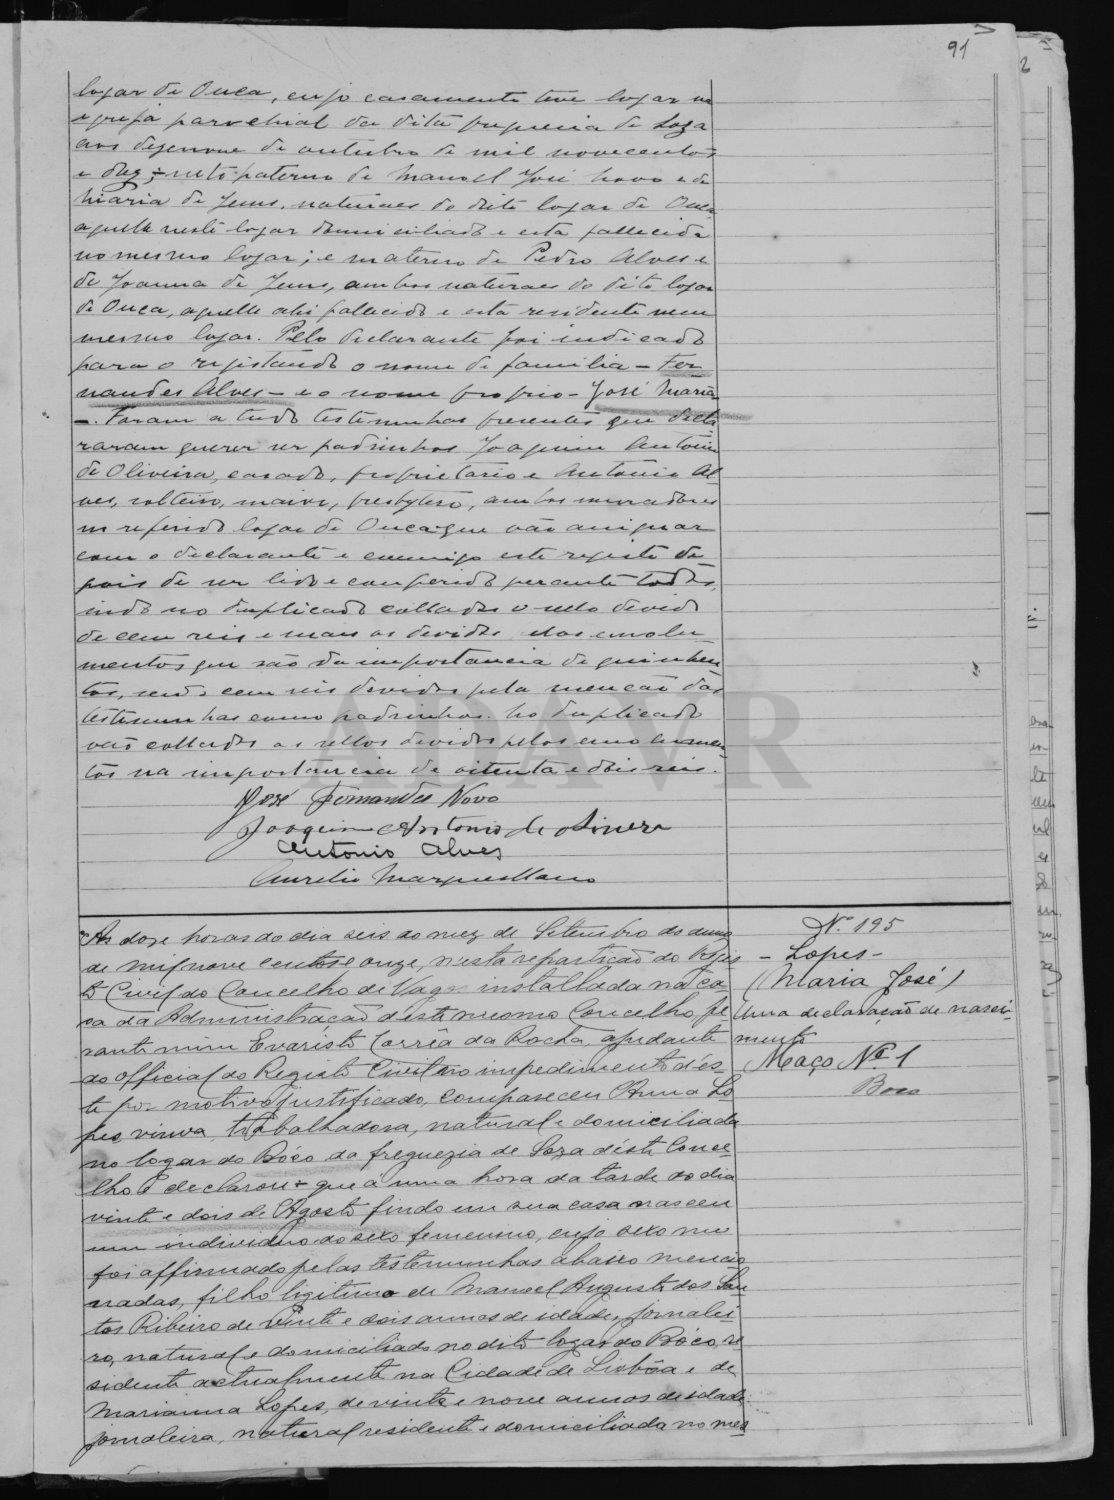 91
logar de Ouca, cujo casamento teve logar na
egreja parochial da dita freguesia de Soza
aos dezenove de outubro de mil novecentos
e dez; neto paterno de Manoel José Novo e de
Maria de Jesus, naturaes do dito logar de Ouca
aquelle neste logar domiciliado e esta fallecida
no mesmo logar; e materno de Pedro Alves e
de Joanna de Jesus, ambos naturaes do dito logar
de Ouca, aquelle ahi fallecido e esta residente nesse
mesmo logar. Pelo declarante foi indicado
para o registando o nome de familia - Fer
nandes Alves - e o nome proprio - José Maria
-. Foram a tudo testemunhas presentes que decla
raram querer ser padrinhos Joaquim Antonio
de Oliveira, casado, proprietario e Antonio Al
ves, solteiro, maior, presbytero, ambos moradores
no referido logar de Ouca que vão assignar
com o declarante e commigo este registo de
pois de ser lido e conferido perante todos,
indo no duplicado collados o sello devido
de cem reis e mais os devidos dos emolu
mentos que são da importancia de quinhen
tos, sendo cem reis devidos pela menção das
testemunhas como padrinhos. No duplicado
vão collados os sellos devidos pelos emolumen
tos na importancia de oitenta e dois reis.
José Fernandes Novo
Joaquim Antonio de Oliveira
Antonio Alves
Aurelio Marques Mano
As doze horas do dia seis do mez de Setembro do anno
de mil nove centos e onze, n'esta repartição do Regis
to Civil do Concelho de Vagos installada na ca-
sa da Administração d'este mesmo Concelho, pe
rante mim Evaristo Corrêa da Rocha, ajudante
do official do Registo Civil no impedimento d'és-
te por motivo justificado, compareceu Anna Lo
pes viuva, trabalhadora, natural e domiciliada
no logar do Bôco da freguezia de Soza d'este Conce-
lho e declarou: que á uma hora da tarde do dia
vinte e dois de Agosto findo em sua casa nasceu
um individuo do sexo femenino, cujo sexo me
foi affirmado pelas testemunhas abaixo mencio
nadas, filho ligitimo de Manoel Augusto dos San-
tos Ribeiro de vinte e dois annos de idade, jornalei
ro, natural e domiciliado no dito logar do Bôco, re
sidente actualmente na Cidade de Lisbôa e de
Marianna Lopes, de vinte e nove annos de idade
jornaleira, natural residente e domiciliada no mes
Nº 195
- Lopes -
(Maria José)
Uma declaração de nasci-
mento
Maço Nº 1
Boco
ADAVR